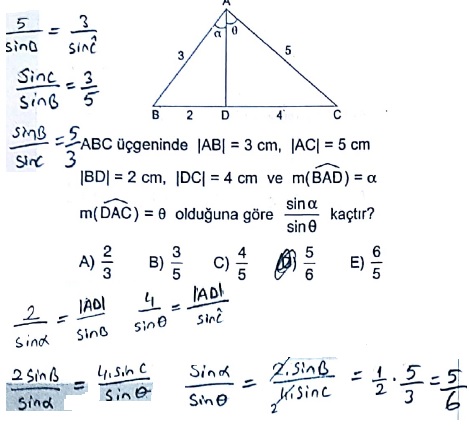 5/sinB = 3/sinĈ
sinC/sinB = 3/5
sinB/sinC = 5/3
A
α θ
3 5
B 2 D 4 C
ABC üçgeninde |AB| = 3 cm, |AC| = 5 cm
|BD| = 2 cm, |DC| = 4 cm ve m(BAD) = α
m(DAC) = θ olduğuna göre sinα/sinθ kaçtır?
A) 2/3 B) 3/5 C) 4/5 D) 5/6 E) 6/5
2/sinα = |AD|/sinB 4/sinθ = |AD|/sinĈ
2sinB/sinα = 4.sinC/sinθ sinα/sinθ = 2.sinB/4sinC = 1/2 · 5/3 = 5/6
2